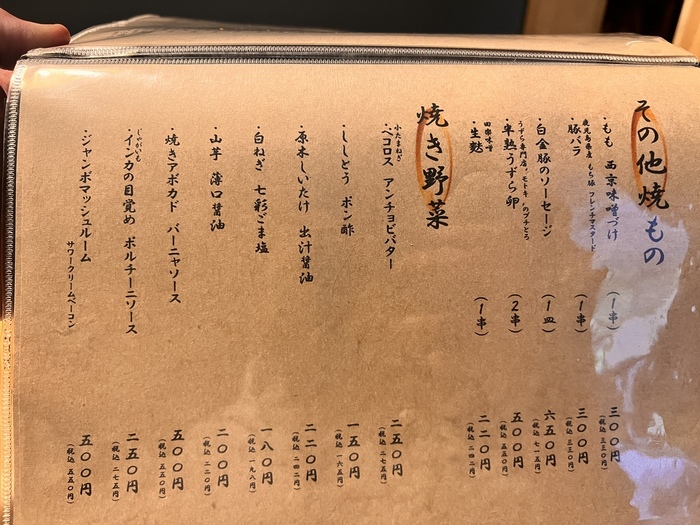 その他焼もの
・もも 西京味噌づけ (1串) 三〇〇円 (税込 三三〇円)
鹿児島県産 もち豚 フレンチマスタード
・豚バラ (1串) 三〇〇円 (税込 三三〇円)
・白金豚のソーセージ (1皿) 六五〇円 (税込 七一五円)
うずら専門店、モトキ、のプチとろ
・半熟うずら卵 (2串) 五〇〇円 (税込 五五〇円)
田楽味噌
・生麩 (1串) 二二〇円 (税込 二四二円)
焼き野菜
小たまねぎ
・ペコロス アンチョビバター 二五〇円 (税込 二七五円)
・ししとう ポン酢 一五〇円 (税込 一六五円)
・原木しいたけ 出汁醤油 二二〇円 (税込 二四二円)
・白ねぎ 七彩ごま塩 一八〇円 (税込 一九八円)
・山芋 薄口醤油 二〇〇円 (税込 二二〇円)
・焼きアボカド バーニャソース 五〇〇円 (税込 五五〇円)
じゃがいも
・インカの目覚め ポルチーニソース 二五〇円 (税込 二七五円)
・ジャンボマッシュルーム 五〇〇円 (税込 五五〇円)
サワークリームベーコン